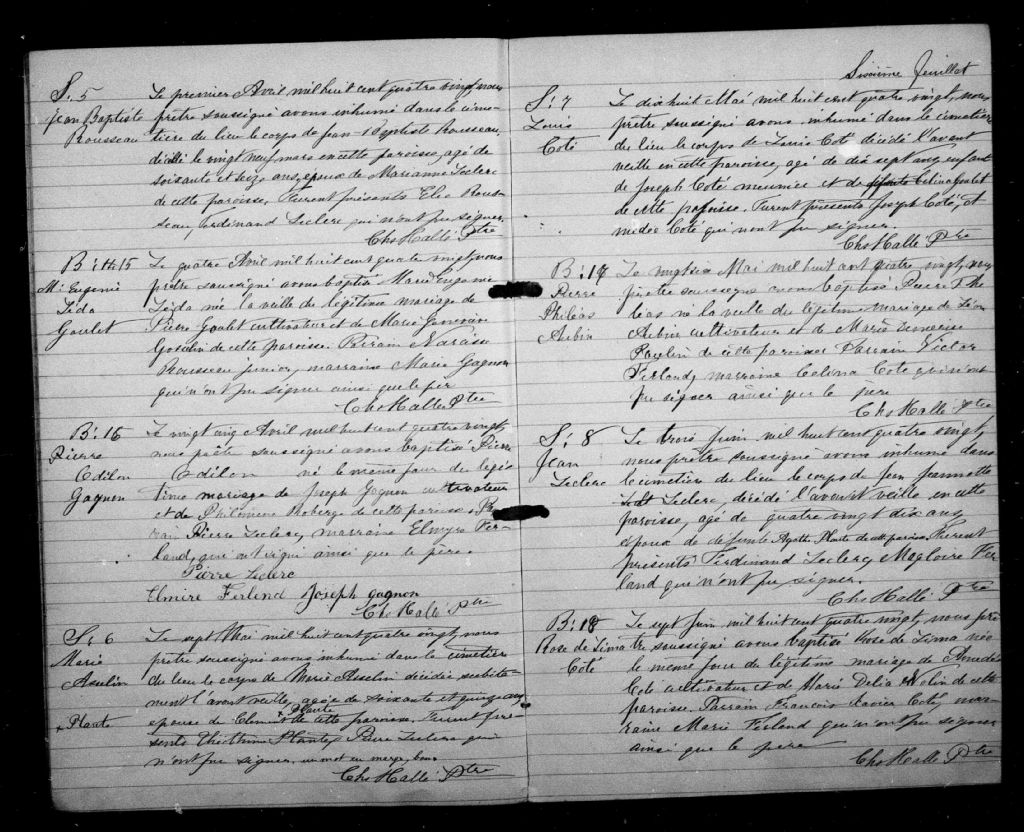 S. 5
Jean Baptiste
Rousseau
Le premier Avril mil huit cent quatre vingt, nous
prêtre soussigné avons inhumé dans le cime-
tière du lieu le corps de Jean-Baptiste Rousseau,
décédé le vingt neuf mars en cette paroisse, agé de
soixante et ans, epoux de Marianne Leclerc
de cette paroisse. Furent présents Rous-
seau, Ferdinand Leclerc qui n'ont pu signer.
Chs Hallé Ptre
B: 15
M: Eugenie
Léda
Goulet
Le quatre Avril mil huit cent quatre vingt, nous
prêtre soussigné avons baptisé Marie Eugenie
Léda née la veille du légitime mariage de
Pierre Goulet cultivateur et de Marie Genevieve
Gosselin de cette paroisse. Parrain Narcisse
Rousseau junior, marraine Marie Gagnon
qui n'ont pu signer ainsi que le père
Chs Hallé Ptre
B: 16
Pierre
Odilon
Gagnon
Le vingt cinq Avril mil huit cent quatre vingt,
nous prêtre soussigné avons baptisé Pierre
Odilon né le même jour du légi-
time mariage de Joseph Gagnon cultivateur
et de Philomène Roberge de cette paroisse. Par-
rain Pierre Leclerc, marraine Elmyre Fer-
land, qui ont signé ainsi que le père.
Pierre Leclerc
Elmire Ferland Joseph gagnon
Chs Hallé Ptre
S: 6
Marie
Asselin
+ Plante
Le sept Mai mil huit cent quatre vingt, nous
prêtre soussigné avons inhumé dans le cimetière
du lieu le corps de Marie Asselin décédée subite-
ment l'avant veille, agée de soixante et quinze ans
+ Plante
epouse de de cette paroisse. Furent pré-
sents Plante, Pierre Leclerc qui
n'ont pu signer. un mot en marge, bon.
Chs Hallé Ptre
Sixième feuillet
S: 7
Louis
Coté
Le dix huit Mai mil huit cent quatre vingt, nous
prêtre soussigné avons inhumé dans le cimetière
du lieu le corps de Louis Coté décédé l'avant
veille en cette paroisse, agé de dix sept ans, enfant
de Joseph Coté meunier et de défunte Celina Goulet
de cette paroisse. Furent présents Joseph Coté, et
Coté qui n'ont pu signer.
Chs Hallé Ptre
B: 17
Pierre
Philéas
Aubin
Le vingt six Mai mil huit cent quatre vingt, nous
prêtre soussigné avons baptisé Pierre Phi-
léas né la veille du légitime mariage de Léon
Aubin cultivateur et de Marie
de cette paroisse Parrain Victor
Ferland, marraine Celina Coté qui n'ont
pu signer ainsi que le père
Chs Hallé Ptre
S: 8
Jean
Leclerc
Le trois Juin mil huit cent quatre vingt,
nous prêtre soussigné avons inhumé dans
le cimetière du lieu le corps de Jean
Leclerc, décédé l'avant veille en cette
paroisse, agé de quatre vingt dix ans,
epoux de défunte Agathe Plante de cette paroisse. Furent
présents Ferdinand Leclerc, Magloire Fer-
land qui n'ont pu signer.
Chs Hallé Ptre
B: 18
Rose de Lima
Coté
Le sept Juin mil huit cent quatre vingt, nous prê-
tre soussigné avons baptisé Rose de Lima née
le même jour du légitime mariage de Amédé
Coté cultivateur et de Marie Delia Nolin de cette
paroisse. Parrain François Xavier Coté, mar-
raine Marie Ferland qui n'ont pu signer
ainsi que le père
Chs Hallé Ptre